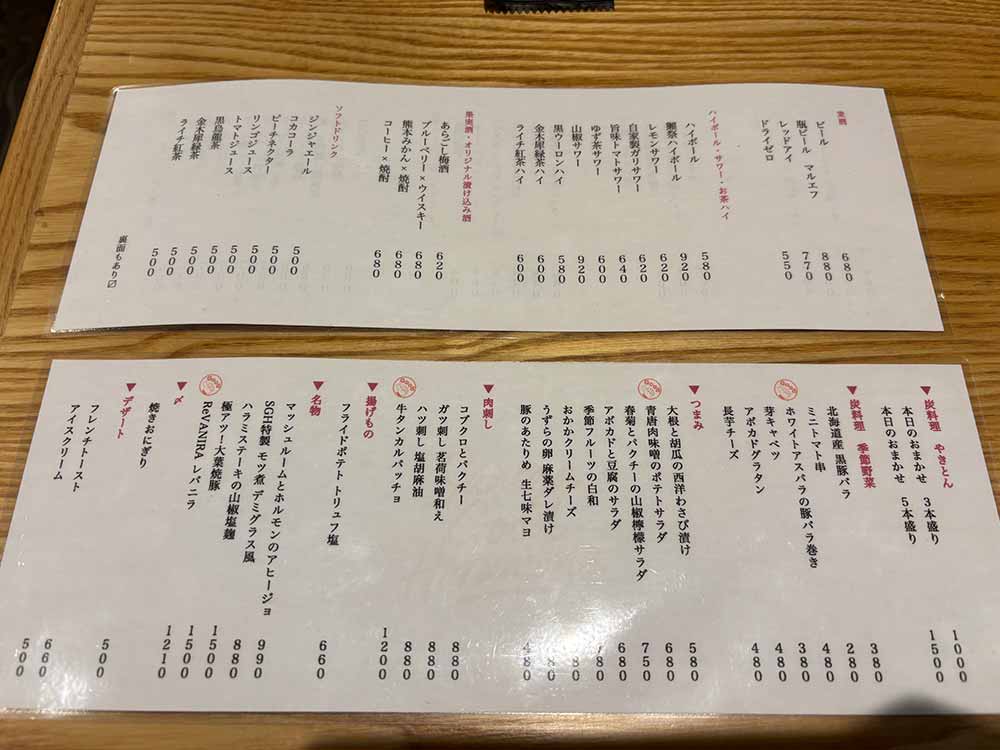 麦酒
ビール 680
瓶ビール マルエフ 880
レッドアイ 770
ドライゼロ 550
ハイボール・サワー・お茶ハイ
ハイボール 580
獺祭ハイボール 920
レモンサワー 620
自家製ガリサワー 620
旨味トマトサワー 640
ゆず茶サワー 600
山椒サワー 920
黒ウーロンハイ 580
金木犀緑茶ハイ 600
ライチ紅茶ハイ 600
果実酒・オリジナル漬け込み酒
あらごし梅酒 620
ブルーベリー×ウイスキー 680
熊本みかん×焼酎 680
コーヒー×焼酎 680
ソフトドリンク
ジンジャエール 500
コカコーラ 500
ピーチネクター 500
リンゴジュース 500
トマトジュース 500
黒烏龍茶 500
金木犀緑茶 500
ライチ紅茶 500
裏面もあり〼
▼炭料理 やきとん
本日のおまかせ 3本盛り 1000
本日のおまかせ 5本盛り 1500
▼炭料理 季節野菜
北海道産 黒豚バラ 380
ミニトマト串 280
ホワイトアスパラの豚バラ巻き 480
芽キャベツ 380
アボカドグラタン 480
長芋チーズ 480
▼つまみ
大根と胡瓜の西洋わさび漬け 580
青唐肉味噌のポテトサラダ 680
春菊とパクチーの山椒檸檬サラダ 750
アボカドと豆腐のサラダ 680
季節フルーツの白和 780
おかかクリームチーズ
うずらの卵 麻薬ダレ漬け
豚のあたりめ 生七味マヨ 480
▼肉刺し
コブクロとパクチー 880
ガツ刺し 茗荷味噌和え 880
ハツ刺し 塩胡麻油 880
牛タンカルパッチョ 1200
▼揚げもの
フライドポテト トリュフ塩 660
▼名物
マッシュルームとホルモンのアヒージョ 990
SGH特製 モツ煮 デミグラス風 880
ハラミステーキの山椒塩麹 1500
極アツ！大葉焼豚 1500
ReVANIRA レバニラ 1210
▼〆
焼きおにぎり 500
▼デザート
フレンチトースト 660
アイスクリーム 500